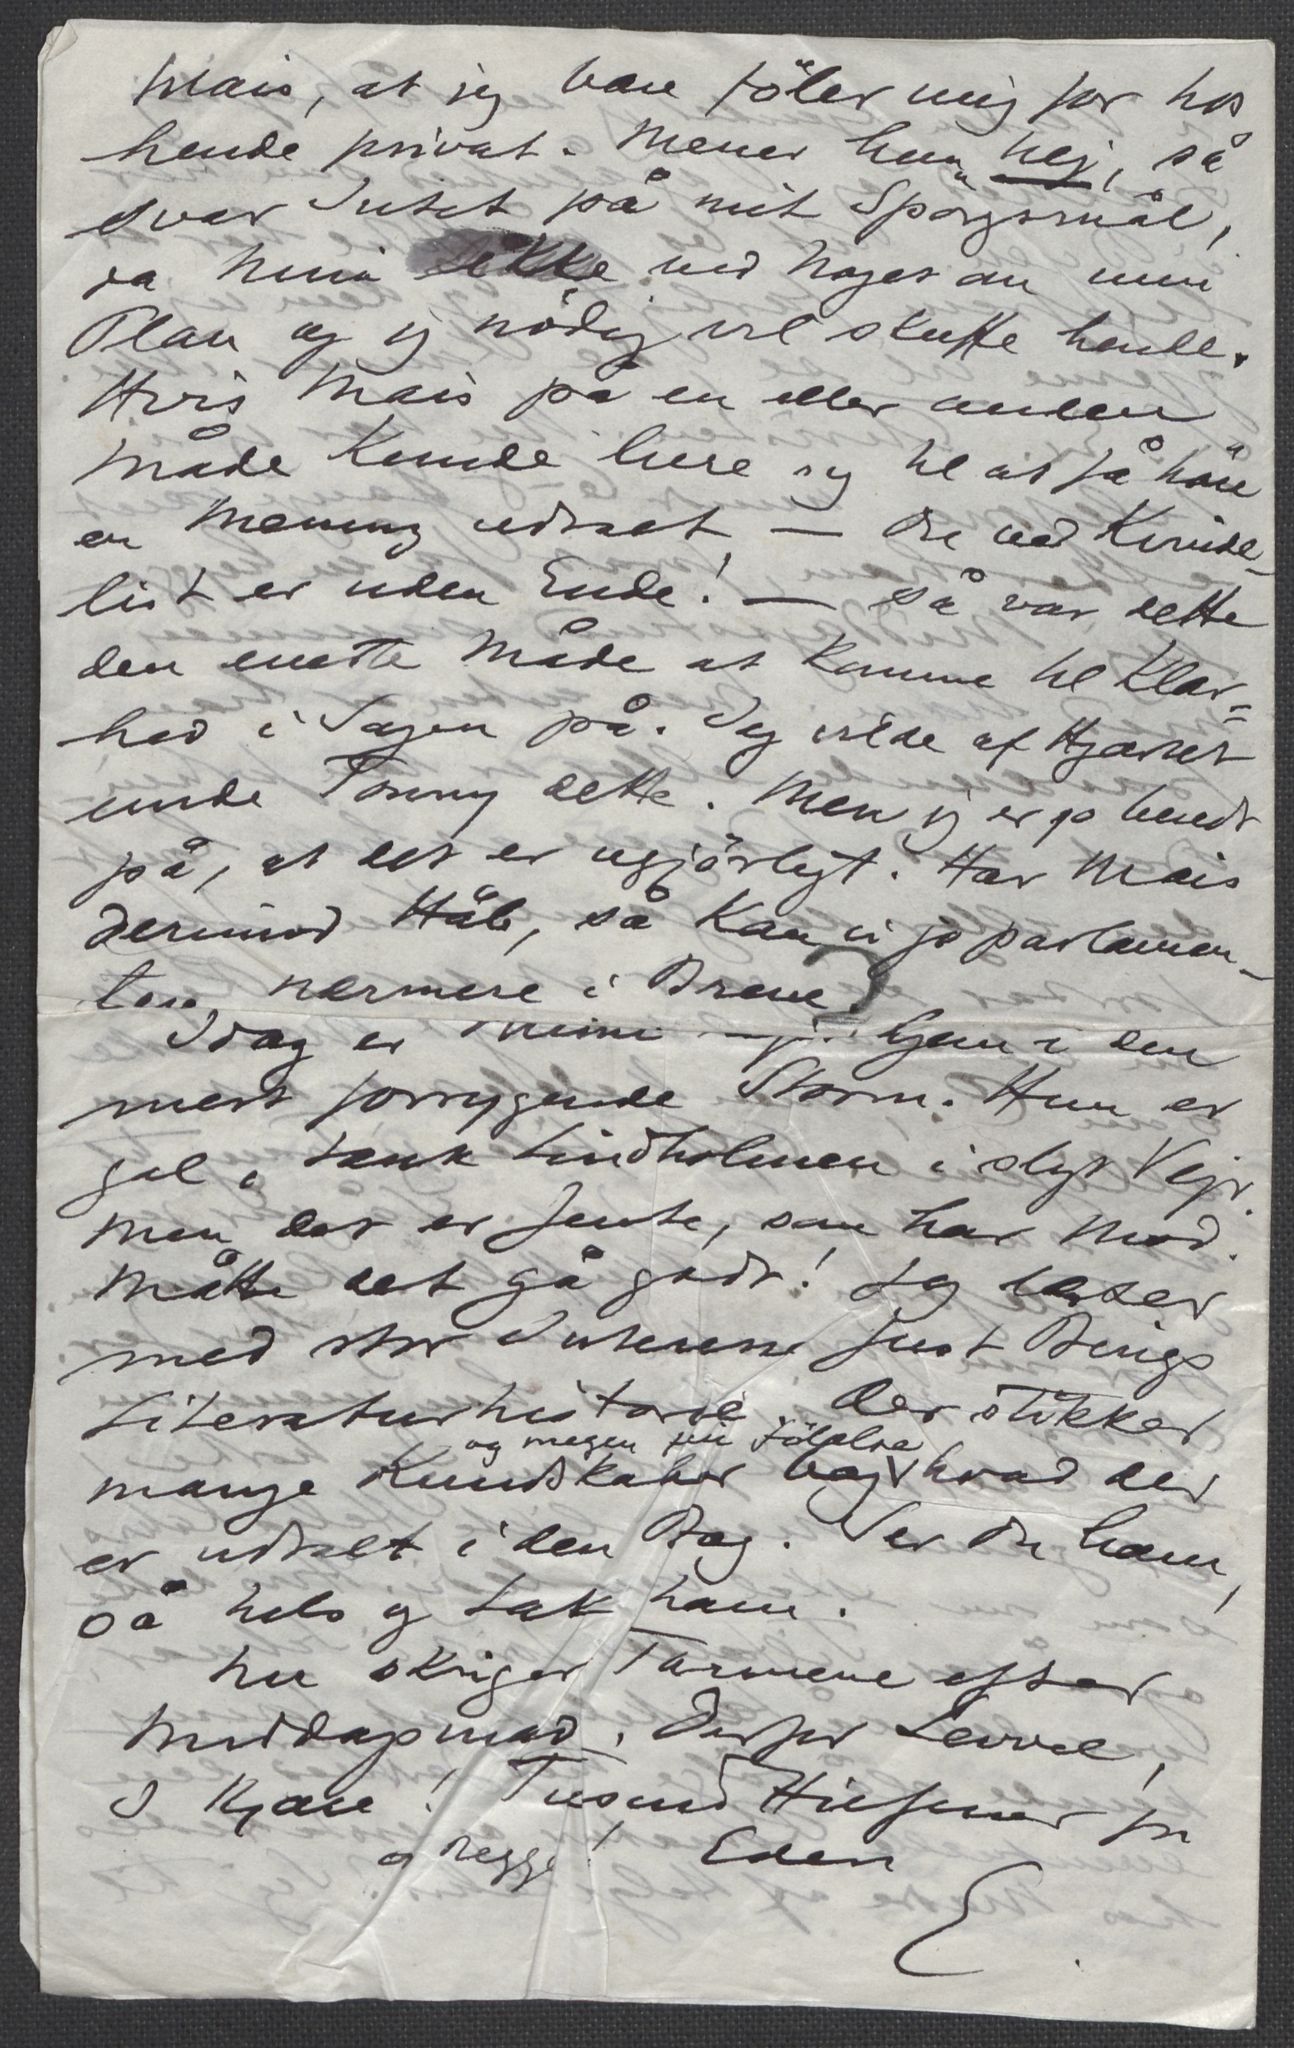 Mais, at jeg bare föler mig for hos
hende privat. Mener hun nej, så
svar Intet på mit Spørgsmål,
da Nina ikke ved Noget om min
Plan og jeg nödig vil skuffe hende.
Hvis Mais på en eller anden
Måde Kunde lure sig til at få höre
en Mening udtalt, – Du ved Kvinde-
list er uden Ende! – så var dette
den eneste Måde at komme til Klar=
hed i Sagen på. Jeg vilde af Hjertet
unde Tonny dette. Men jeg er jo beredt
på, at det er ugjörligt. Har Mais
derimod Håb, så Kan vi jo parlamen-
tere nærmere i Breve.
Idag er Nina Hjem i den
mest forrygende Storm. Hun er
gal, tænk Lindholmen i slygt Vejr.
Men det er Jente, som har Mod.
Måtte det gå godt! Jeg læser
med stor Interesse Just Bings
Literaturhistorie. Der stikker
og megen fin Fölelse
mange Kundskaber bag hvad der
er udtalt i den Bog. Ser Du ham,
så hils og tak ham.
Nu skriger Tarmene efter
Middagsmad. Derfor Levvel,
I Kjære! Tusind Hilsener fra
o Begge! Eders
E